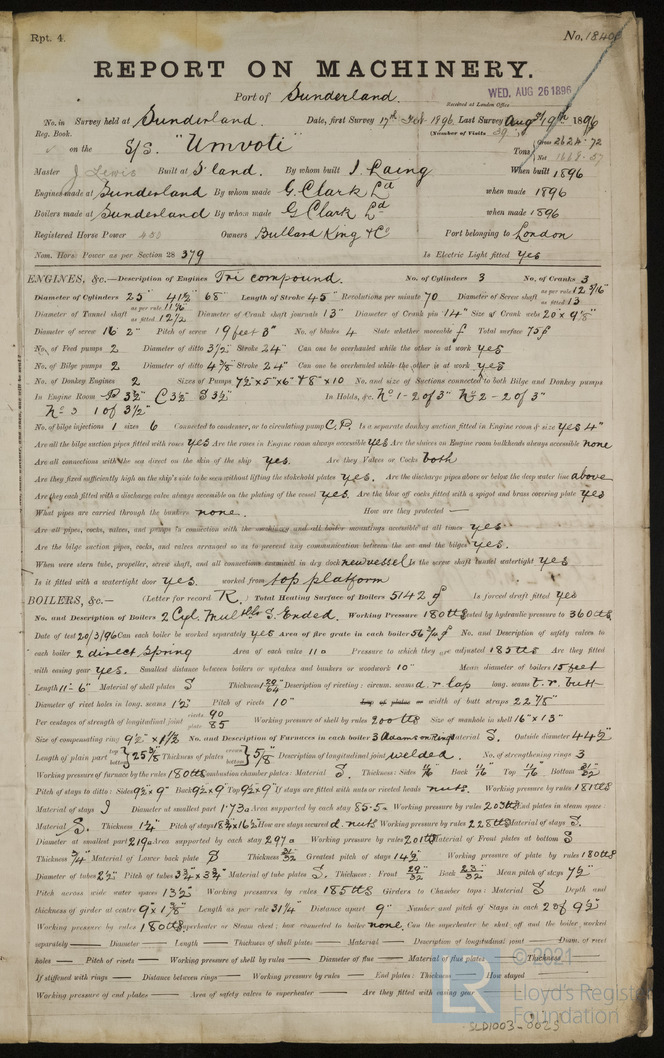 Rpt. 4. No. 1840
REPORT ON MACHINERY.
Port of Sunderland. WED. AUG 26 1896
Received at London Office
No. in Survey held at Sunderland. Date, first Survey 17th Feb 1896 Last Survey Aug 19th 1896
Reg. Book. (Number of Visits 39)
on the S/S. "Umvoti" Tons Gross 2624.72
Net
Master J Lewis Built at S'land. By whom built J. Laing When built 1896
Engines made at Sunderland By whom made G. Clark Ld when made 1896
Boilers made at Sunderland By whom made G Clark Ld when made 1896
Registered Horse Power Owners Bullard King & Co Port belonging to London
Nom. Horse Power as per Section 28 379 Is Electric Light fitted yes
ENGINES, &c.—Description of Engines Tri compound. No. of Cylinders 3 No. of Cranks 3
Diameter of Cylinders 25" 41½" 68" Length of Stroke 45" Revolutions per minute 70 Diameter of Screw shaft as per rule 12 3/16" as fitted 13
Diameter of Tunnel shaft as per rule as fitted 12½ Diameter of Crank shaft journals 13" Diameter of Crank pin 14" Size of Crank webs 20" x 9⅛"
Diameter of screw 16' 2" Pitch of screw 19 feet 3" No. of blades 4 State whether moveable Total surface 75
No. of Feed pumps 2 Diameter of ditto 3½" Stroke 24" Can one be overhauled while the other is at work yes
No. of Bilge pumps 2 Diameter of ditto 4⅜" Stroke 24" Can one be overhauled while the other is at work yes
No. of Donkey Engines 2 Sizes of Pumps 7½" x 5" x 6" & 8" x 10 No. and size of Suctions connected to both Bilge and Donkey pumps
In Engine Room P 3½" C 3½" S 3½" In Holds, &c. No 1 - 2 of 3" No 2 - 2 of 3"
No 3 1 of 3½"
No. of bilge injections 1 sizes 6 Connected to condenser, or to circulating pump C.P. Is a separate donkey suction fitted in Engine room & size yes 4"
Are all the bilge suction pipes fitted with roses yes Are the roses in Engine room always accessible yes Are the sluices on Engine room bulkheads always accessible none
Are all connections with the sea direct on the skin of the ship yes. Are they Valves or Cocks both
Are they fixed sufficiently high on the ship's side to be seen without lifting the stokehold plates yes. Are the discharge pipes above or below the deep water line above
Are they each fitted with a discharge valve always accessible on the plating of the vessel yes. Are the blow off cocks fitted with a spigot and brass covering plate yes
What pipes are carried through the bunkers none. How are they protected —
Are all pipes, cocks, valves, and pumps in connection with the machinery and all boiler mountings accessible at all times yes
Are the bilge suction pipes, cocks, and valves arranged so as to prevent any communication between the sea and the bilges yes.
When were stern tube, propeller, screw shaft, and all connections examined in dry dock new vessel Is the screw shaft tunnel watertight yes
Is it fitted with a watertight door yes. worked from top platform
BOILERS, &c.— (Letter for record R.) Total Heating Surface of Boilers 5142 Is forced draft fitted yes
No. and Description of Boilers 2 Cyl. Mul S. Ended. Working Pressure 180 lbs Tested by hydraulic pressure to 360 lbs
Date of test 20/3/96 Can each boiler be worked separately yes Area of fire grate in each boiler 56 No. and Description of safety valves to
each boiler 2 direct spring Area of each valve 11 Pressure to which they are adjusted 185 lbs Are they fitted
with easing gear yes. Smallest distance between boilers or uptakes and bunkers or woodwork 10" Mean diameter of boilers 15 feet
Length 11' 6" Material of shell plates S Thickness Description of riveting: circum. seams d. r lap long. seams t.r. butt
Diameter of rivet holes in long. seams 1½" Pitch of rivets 10" Lap of plates or width of butt straps 22⅞"
Per centages of strength of longitudinal joint rivets 90 plate 85 Working pressure of shell by rules 200 lbs Size of manhole in shell 16" x 13"
Size of compensating ring 9½" x 1½ No. and Description of Furnaces in each boiler 3 Adamson Rings Material S. Outside diameter 44½"
Length of plain part top bottom 25⅜ Thickness of plates crown bottom ⅝" Description of longitudinal joint welded. No. of strengthening rings 3
Working pressure of furnace by the rules 180 lbs Combustion chamber plates: Material S. Thickness: Sides 11/16 Back 11/16 Top 11/16 Bottom 31/32
Pitch of stays to ditto: Sides 9½ x 9" Back 9½ x 9" Top 9½ x 9" If stays are fitted with nuts or riveted heads nuts. Working pressure by rules 181 lbs
Material of stays I Diameter at smallest part 1.73 Area supported by each stay 85.5 Working pressure by rules 203 lbs End plates in steam space:
Material S. Thickness 1¼" Pitch of stays 18¾ x 16½ How are stays secured d. nuts Working pressure by rules 228 lbs Material of stays S.
Diameter at smallest part 2.19 Area supported by each stay 297 Working pressure by rules 201 lbs Material of Front plates at bottom S
Thickness ¾" Material of Lower back plate S Thickness 31/32 Greatest pitch of stays 14½" Working pressure of plate by rules 180 lbs
Diameter of tubes 2½" Pitch of tubes 3¾" x 3¾" Material of tube plates S. Thickness: Front 29/32 Back 23/32 Mean pitch of stays 7½"
Pitch across wide water spaces 13½" Working pressures by rules 185 lbs Girders to Chamber tops: Material S Depth and
thickness of girder at centre 9" x 1⅜" Length as per rule 31¼" Distance apart 9" Number and pitch of Stays in each 2 of 9½"
Working pressure by rules 180 lbs Superheater or Steam chest; how connected to boiler none. Can the superheater be shut off and the boiler worked
separately — Diameter — Length — Thickness of shell plates — Material — Description of longitudinal joint — Diam. of rivet
holes — Pitch of rivets — Working pressure of shell by rules — Diameter of flue — Material of flue plates — Thickness
If stiffened with rings — Distance between rings — Working pressure by rules — End plates: Thickness How stayed
Working pressure of end plates — Area of safety valves to superheater — Are they fitted with easing gear
© 2021
Lloyd's Register
Foundation
SLD1003-0023